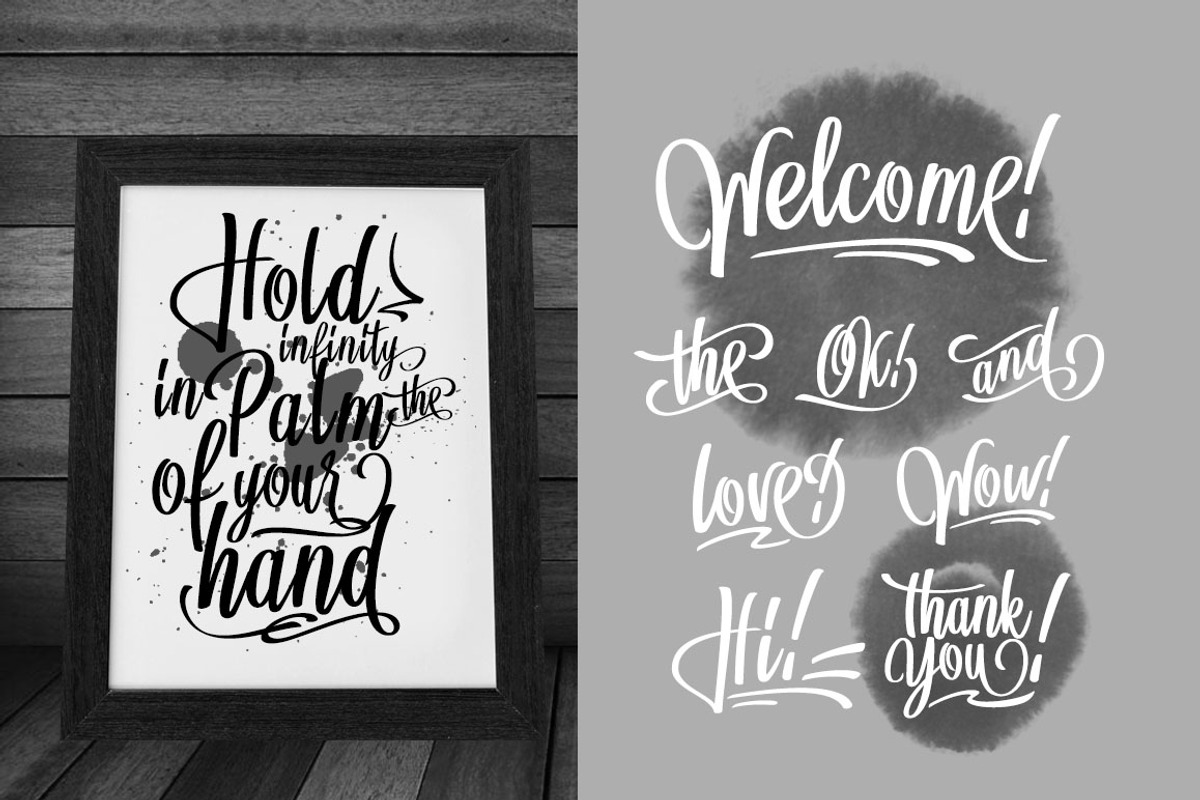 Hold
infinity
in Palm the
of your
hand
Welcome!
the OK! and
love? Wow!
Hi! thank
you!